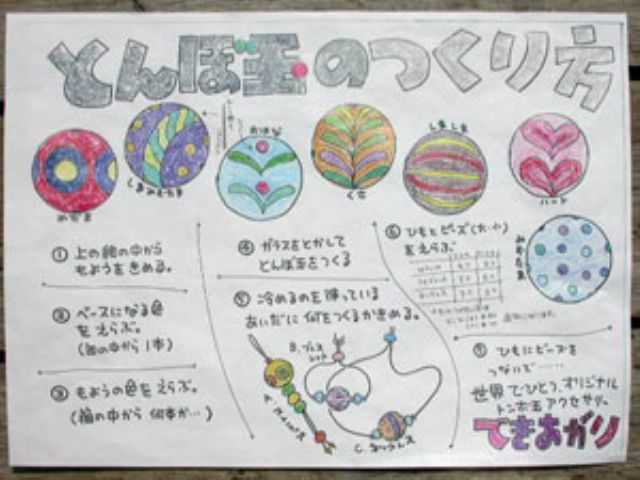 とんぼ玉のつくり方
めだま
おはな
しましま
ハート
みずたま
① 上の絵の中から
もようをきめる。
② ベースになる色
をえらぶ。
(箱の中から1本)
③ もようの色をえらぶ。
(箱の中から 何本か…)
④ ガラスをとかして
とんぼ玉をつくる
⑤ 冷めるのを待っている
あいだに何をつくるかきめる。
B. ブレス
レット
C. ネックレス
⑥ ひもとビーズ(大・小)
をえらぶ
⑦ ひもにビーズを
つないで……
世界でひとつ、オリジナル
トンボ玉アクセサリー
できあがり